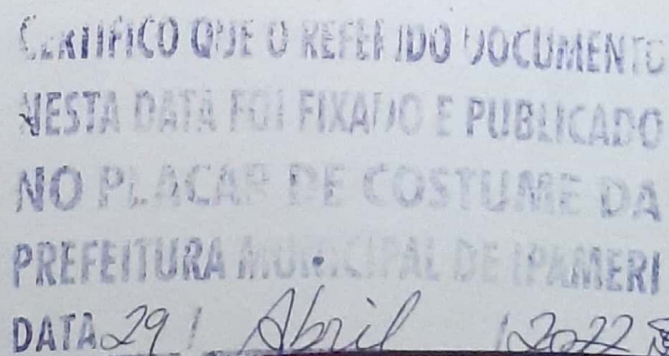 CERTIFICO QUE O REFERIDO DOCUMENTO
NESTA DATA FOI FIXADO E PUBLICADO
NO PLACAR DE COSTUME DA
PREFEITURA MUNICIPAL DE IPAMERI
DATA 29 / Abril / 2022